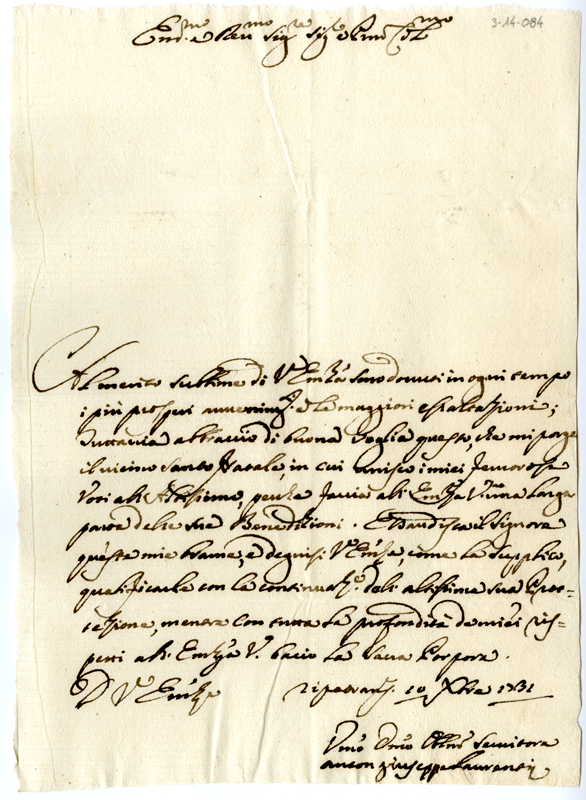 3-14-084
Em.mo e Rev.mo Sig.re Sig.re e Pron Col.mo
Al merito sublime di V.Emza sono dovuti in ogni tempo
i più prosperi avvenim.ti e le maggiori esaltazioni;
tuttavia abbraccio di buona voglia questo, che mi porge
il vicino Santo Natale, in cui unisco i miei fervorosi
Voti all'Altissimo, perche facci all'Emza Vra larga
parte delle sue Benedizioni. Esaudisca il Signore
queste mie brame, e degnisi V.Emza, come la supplico,
qualificarle con la continuaz.e dell'altissima sua Prot=
tezione, mentre con tutta la profondità de miei ris=
petti all'Emza V. bacio la Sacra Porpora.
D V Emza
10 Xbre 1731
Vmo Dmo Servitore
Giuseppe Laurentij